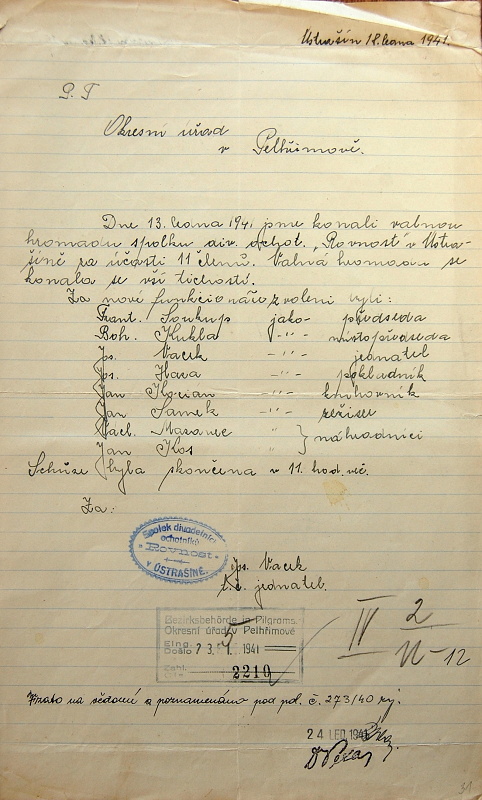 Ustrašín 18. ledna 1941.
P. T
Okresní úřad
v Pelhřimově.
Dne 13. ledna 1941 jsme konali valnou
hromadu spolku div. ochot. „Rovnost" v Ustra-
šíně za účasti 11 členů. Valná hromada se
konala se vší tichostí.
Za nové funkcionáře zvoleni byli:
Frant. Soukup jako předseda
Boh. Kukla -"- místopředseda
Jos. Vacek -"- jednatel
Jos. Hava -"- pokladník
Jan Florian -"- knihovník
Jan Samek -"- režisér
Václ. Mazanec " } náhradníci
Jan Kos "
Schůze byla skončena v 11. hod. več.
Za:
Spolek divadelních
ochotníků
"Rovnost"
v USTRAŠÍNĚ.
Jos. Vacek
t. č. jednatel.
Bezirksbehörde in Pilgrams.
Okresní úřad v Pelhřimově
Eing.
Došlo 23. 1. 1941
Zahl
Čís. 2210
5
IV 2
N-12
Vzato na vědomí a poznamenáno pod pol. č. 273/40 rej.
24 LED 1941
31